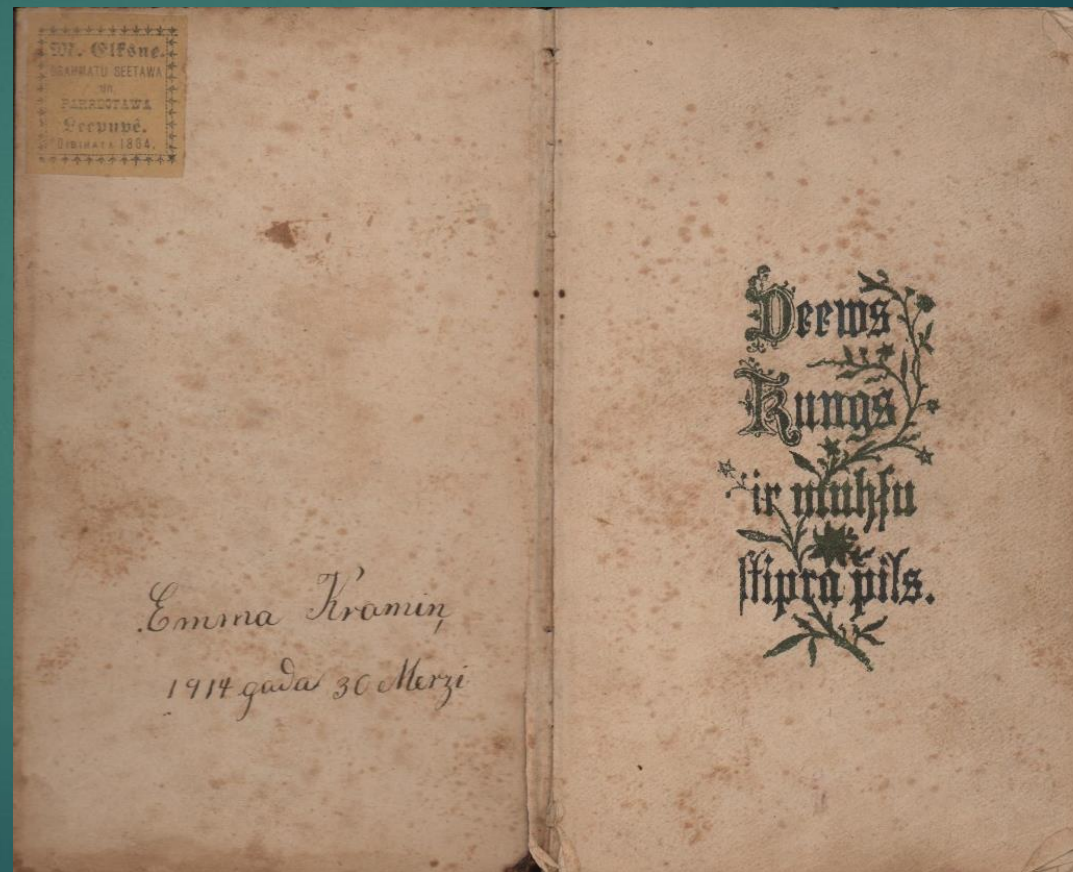 M. Elksne.
GRAHMATU SEETAWA
un
PAHRDOTAWA
Leepupê.
DIBINATA 1864.
Emma Kramiņ
1914 gada 30 Merzi
Deews
Kungs
ir muhſu
ſtipra pils.